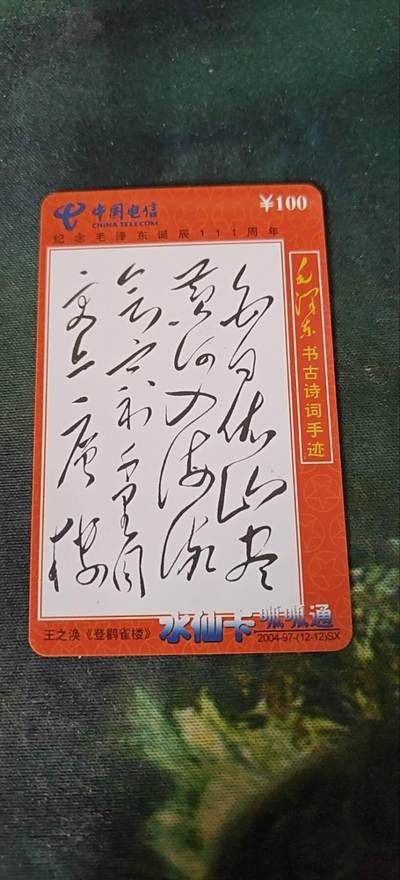 中国电信
CHINA TELECOM
¥100
纪念毛泽东诞辰111周年
毛泽东书古诗词手迹
白日依山尽
黄河入海流
欲穷千里目
更上一层楼
王之涣《登鹳雀楼》
水仙卡呱呱通
2004-97-(12-12)SX